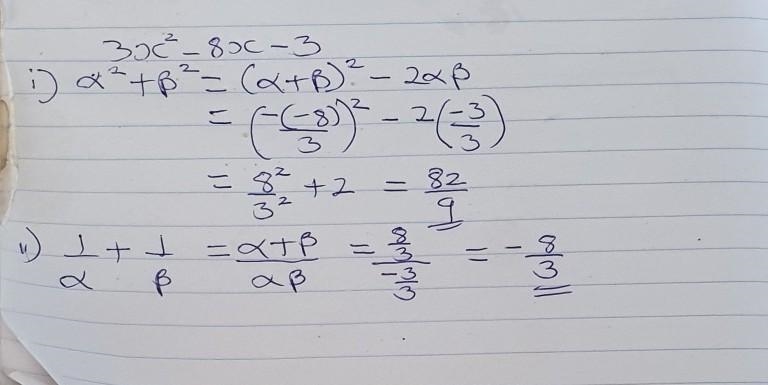 3x² - 8x - 3
i) α² + β² = (α+β)² - 2αβ
= (-(-8)/3)² - 2(-3/3)
= 8²/3² + 2 = 82/9
ii) 1/α + 1/β = α+β/αβ = 8/3/-3/3 = -8/3